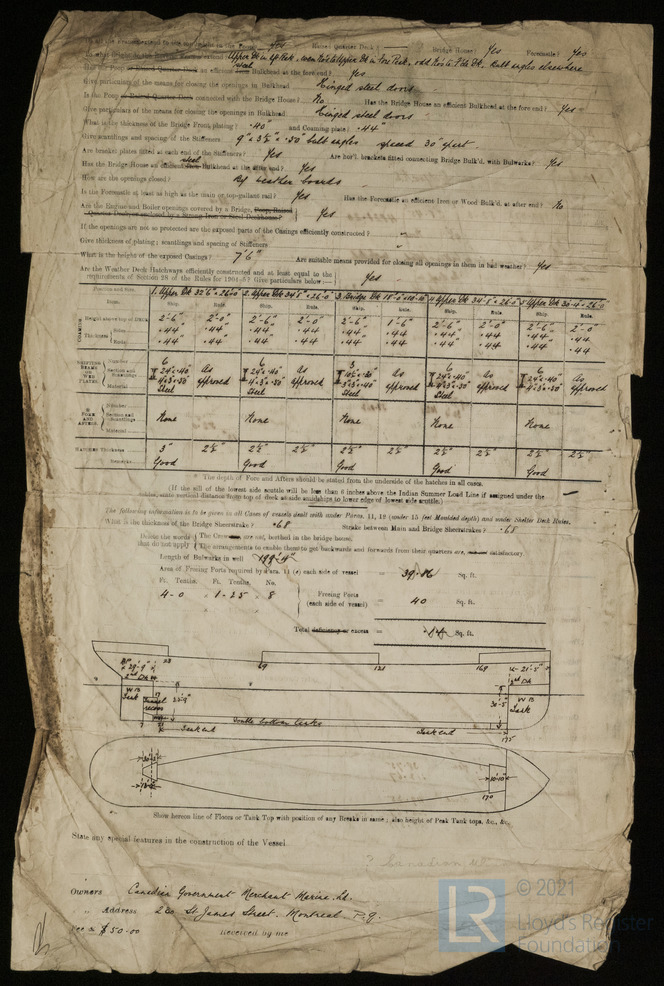 Bridge House? Yes Forecastle? Yes
Bulkhead at the fore end? Yes
Give particulars of the means for closing the openings in Bulkhead Hinged steel doors
Is the Poop or Raised Quarter Deck connected with the Bridge House? No Has the Bridge House an efficient Bulkhead at the fore end? Yes
Give particulars of the means for closing the openings in Bulkhead Hinged steel doors
What is the thickness of the Bridge Front plating? .40" and Coaming plate? .44"
Give scantlings and spacing of the Stiffeners 9" x 3½" x .50" bulb angles spaced 30" apart
Are bracket plates fitted at each end of the Stiffeners? Yes Are hor'l. brackets fitted connecting Bridge Bulk'd. with Bulwarks? Yes
Has the Bridge House an efficient Iron steel Bulkhead at the after end? Yes
How are the openings closed? By weather boards
Is the Forecastle at least as high as the main or top-gallant rail? Yes Has the Forecastle an efficient Iron or Wood Bulk'd. at after end? No
Are the Engine and Boiler openings covered by a Bridge, Poop, Raised
Quarter Deck, or enclosed by a Strong Iron or Steel Deckhouse? } Yes
If the openings are not so protected are the exposed parts of the Casings efficiently constructed? "
Give thickness of plating; scantlings and spacing of Stiffeners "
What is the height of the exposed Casings? 7'6" Are suitable means provided for closing all openings in them in bad weather? Yes
Are the Weather Deck Hatchways efficiently constructed and at least equal to the
requirements of Section 28 of the Rules for 1904-5? Give particulars below— } Yes
Position and Size. 1. Upper Dk 32'6" x 26'0" 2. Upper Dk 34'8" x 26'0" 3. Bridge Dk 4. Upper Dk 34'8" x 26'0" 5. Upper Dk 30'4" x 26'0"
Item. Ship. Rule. Ship. Rule. Ship. Rule. Ship. Rule. Ship. Rule.
COAMING Height above top of DECK 2'-6" 2'-0" 2'-6" 2'-0" 2'-6" 1'-6" 2'-6" 2'-0" 2'-6" 2'-0"
Thickness Sides .44 .44 .44 .44 .44 .44 .44 .44 .44 .44
Ends .44 .44 .44 .44 .44 .44 .44 .44 .44 .44
SHIFTING BEAMS OR WEB PLATES. Number 6 6 3 6 6
Section and Scantlings 24" x .40" As approved 24" x .40" As approved As approved 24" x .40" As approved 24" x .40" As approved
Material Steel Steel Steel
FORE AND AFTERS. Number
Section and Scantlings None None None None None
Material
HATCHES Thickness 3" 2½" 2½" 2½" 2½" 2½" 2½" 2½" 2½" 2½"
Remarks Good Good Good Good Good
* The depth of Fore and Afters should be stated from the underside of the hatches in all cases.
(If the sill of the lowest side scuttle will be less than 6 inches above the Indian Summer Load Line if assigned under the
tables, state vertical distance from top of deck at side amidships to lower edge of lowest side scuttle)
The following information is to be given in all Cases of vessels dealt with under Paras. 11, 12 (under 15 feet Moulded depth) and under Shelter Deck Rules.
What is the thickness of the Bridge Sheerstrake? .68 Strake between Main and Bridge Sheerstrakes? .68
Delete the words
that do not apply { The Crew are, are not, berthed in the bridge house.
The arrangements to enable them to get backwards and forwards from their quarters are, are not satisfactory
Length of Bulwarks in well 199'-9"
Area of Freeing Ports required by Para. 11 (e) each side of vessel = 39.86 Sq. ft.
Ft. Tenths. Ft. Tenths. No.
4-0 x 1-25 x 8
Freeing Ports (each side of vessel) = 40 Sq. ft.
Total deficiency or excess = .14 Sq. ft.
28 69 121 169
2nd Dk 2nd Dk
W B Tank Tunnel recess W B Tank
7 Tank end Double bottom tanks Tank end 175
170
Show hereon line of Floors or Tank Top with position of any Breaks in same; also height of Peak Tank tops, &c., &c.
State any special features in the construction of the Vessel.
? Canadian
Owners Canadian Government Merchant Marine Ltd.
„ Address 230 St James Street. Montreal P.Q.
Fee $50.00 Received by me
LR © 2021
Lloyd's Register
Foundation